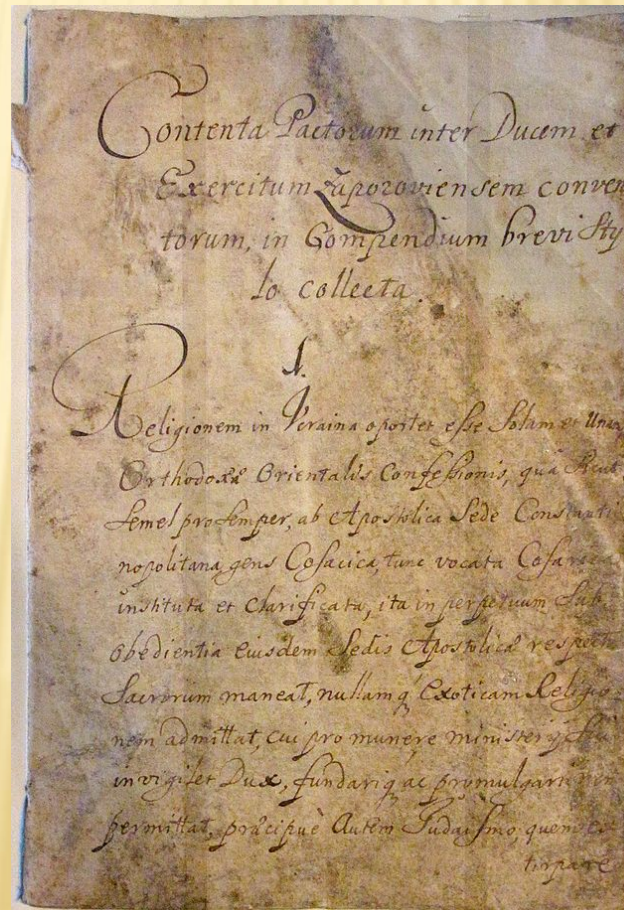 Contenta Pactorum inter Ducem et
Exercitum Zaporoviensem conven
torum, in Compendium brevi Sty
lo collecta.
1.
Religionem in Vcraina oportet esse Solam et Unam
Orthodoxæ Orientalis Confessionis, quâ Sicut
Semel pro semper, ab Apostolica Sede Constanti
nopolitana, gens Cosacica, tunc vocata
instituta et Clarificata, ita in perpetuum Sub
Obedientia eiusdem Sedis Apostolicæ respectu
Sacrorum maneat, nullamq́ Exoticam Religio
nem admittat, cui pro munere ministerÿ
invigilet Dux, fundariq́ ac promulgari non
permittat, præcipuè Autem Judaismo, quem
tirpare